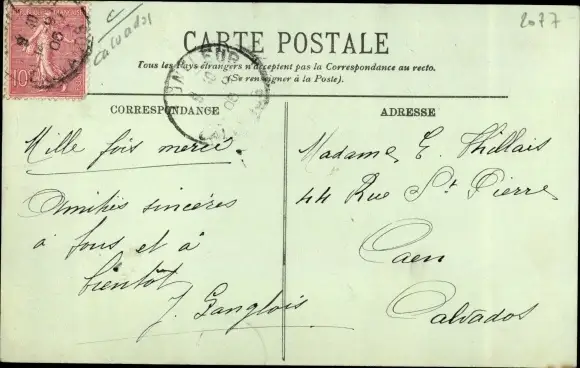 Calvados
2077
CARTE POSTALE
Tous les Pays étrangers n'acceptent pas la Correspondance au recto.
(Se renseigner à la Poste).
CORRESPONDANCE
Mille fois merci.
Amitiés sincères
à tous et à
bientôt
J. Langlois
ADRESSE
Madame E. Thillais
44 Rue St Pierre
Caen
Calvados
10